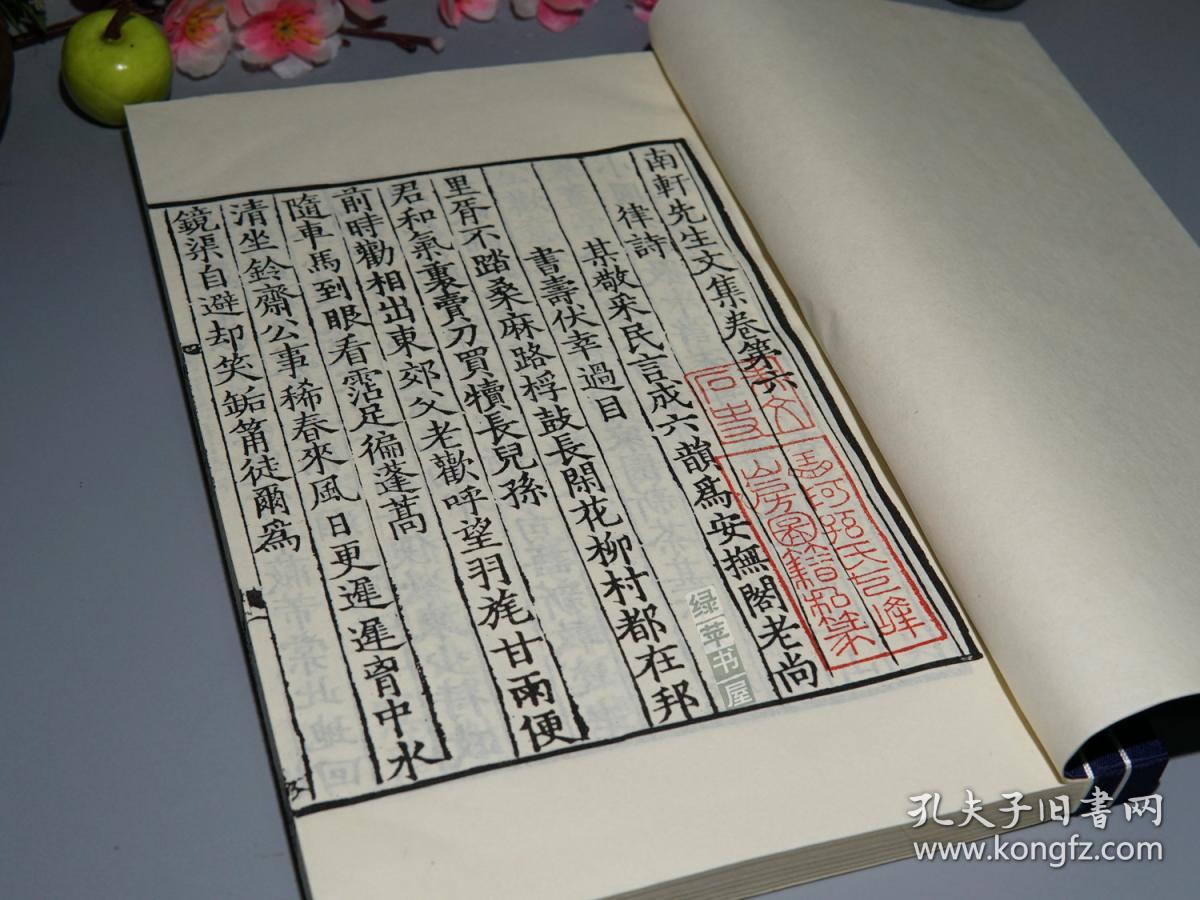 南軒先生文集卷第六
律詩
某敬采民言成六韻爲安撫閣老尚
書壽伏幸過目
里胥不踏桑麻路桴鼓長閑花柳村都在邦
君和氣裏賣刀買犢長兒孫
前時勸相出東郊父老歡呼望羽旄甘雨便
隨車馬到眼看霑足徧蓬蒿
清坐鈴齋公事稀春來風日更遲遲胷中水
鏡渠自避却笑鉤𥮉徒爾爲
山房圖籍
绿苹书屋
孔夫子旧书网
www.kongfz.com